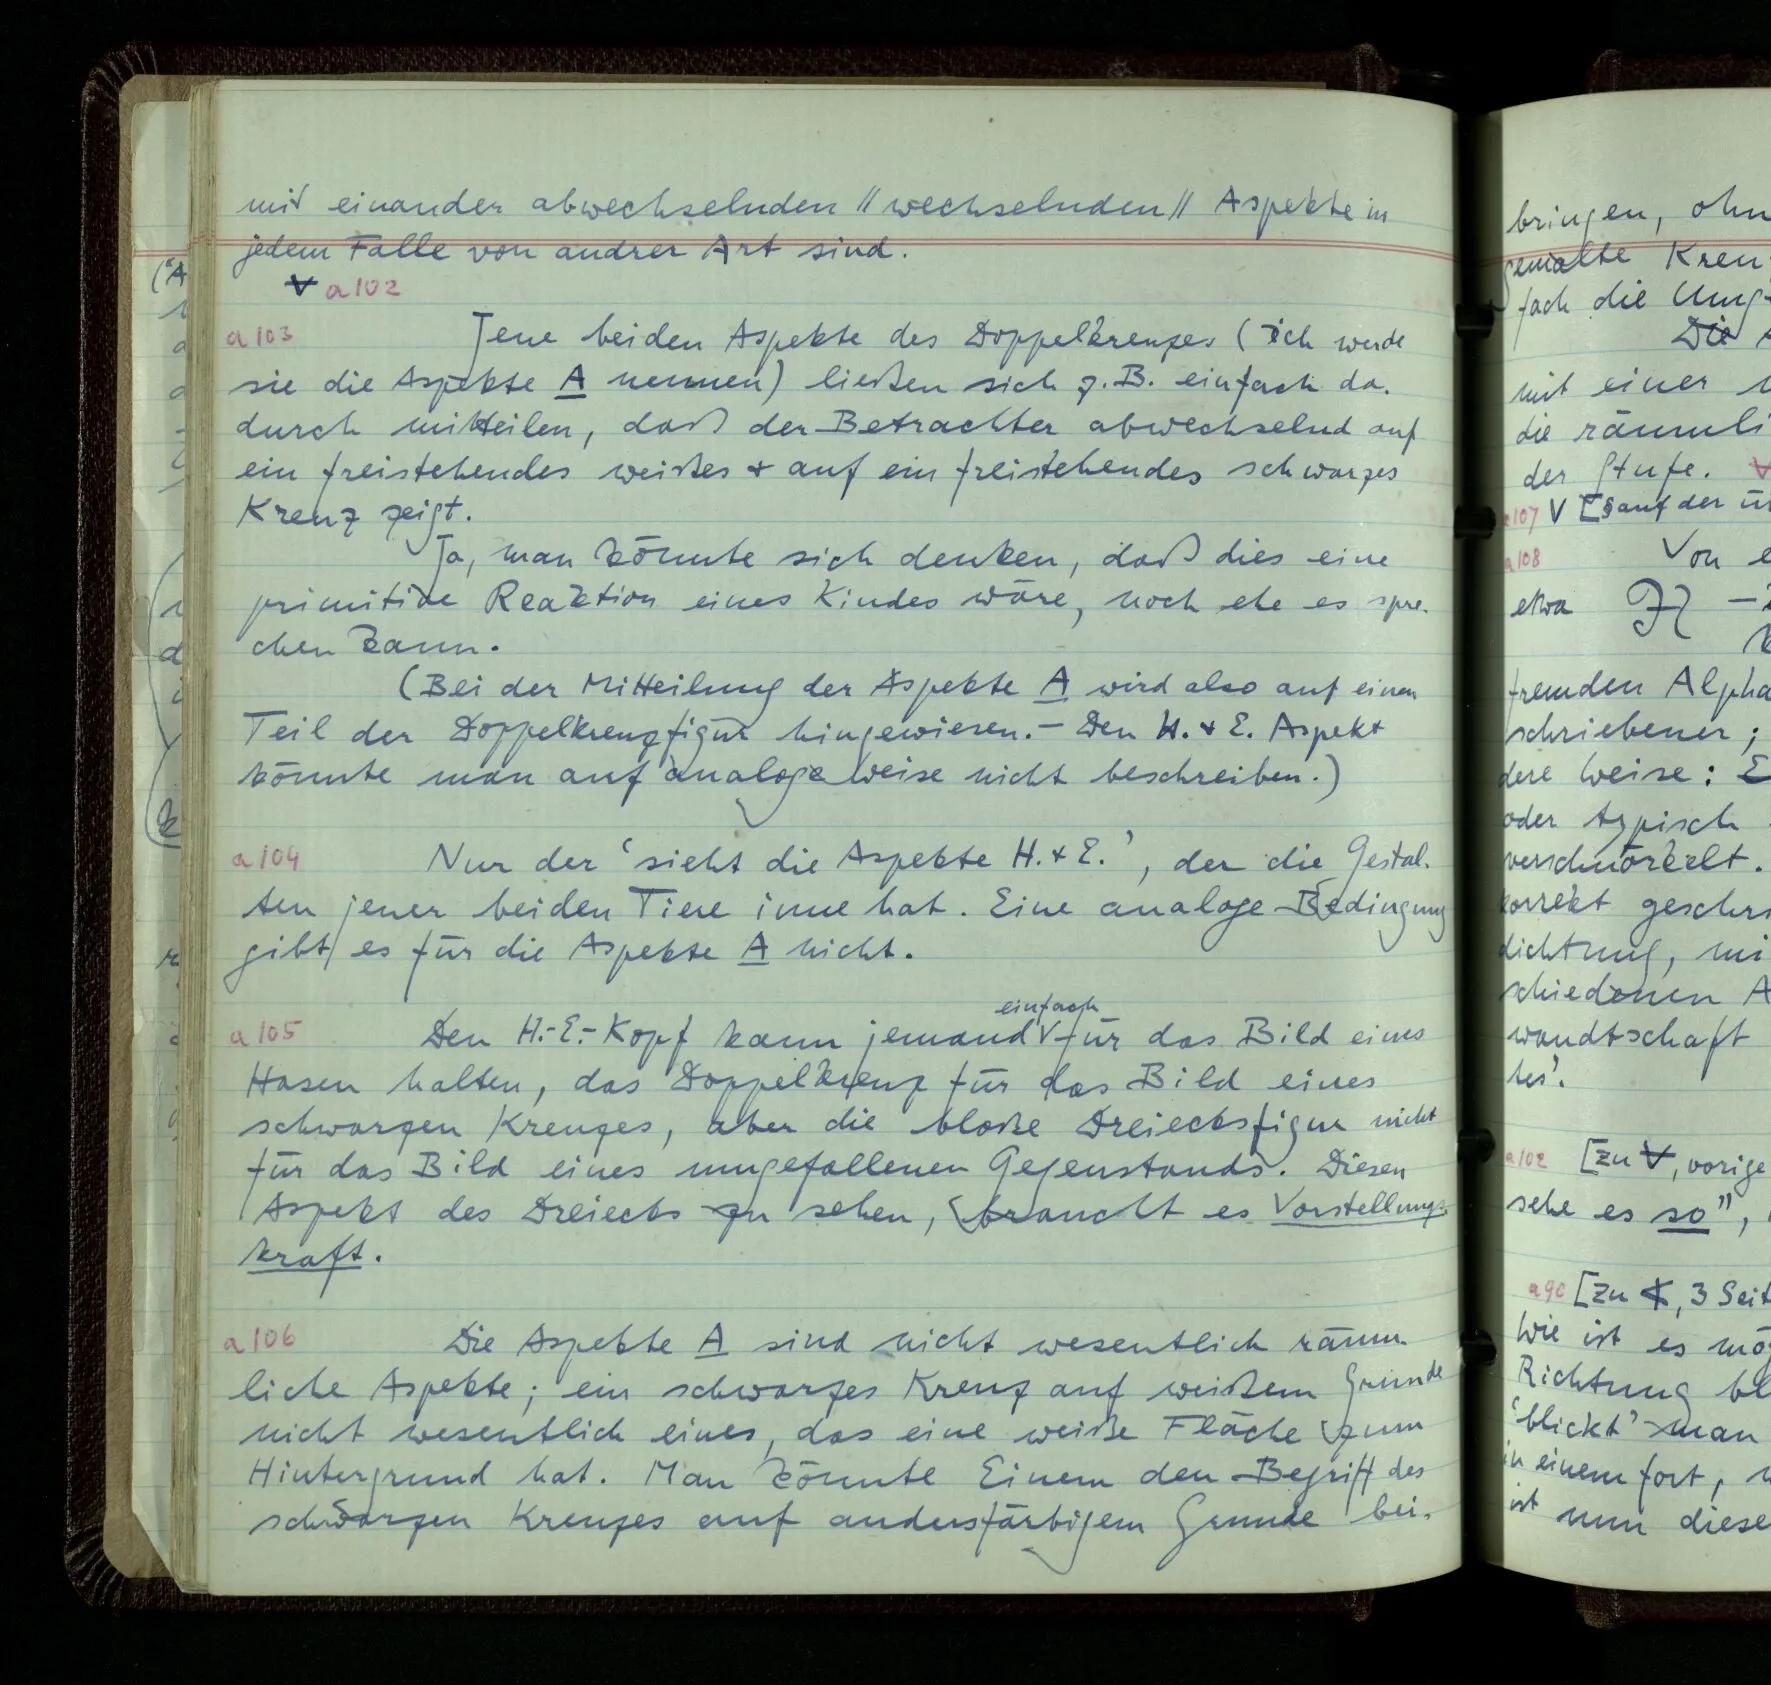 mit einander abwechselnden // wechselnden // Aspekte in
jedem Falle von andrer Art sind.
V a102
a103 Jene beiden Aspekte des Doppelkreuzes (ich werde
sie die Aspekte A nennen) ließen sich z.B. einfach da-
durch mitteilen, daß der Betrachter abwechselnd auf
ein freistehendes weißes + auf ein freistehendes schwarzes
Kreuz zeigt.
Ja, man könnte sich denken, daß dies eine
primitive Reaktion eines Kindes wäre, noch ehe es spre-
chen kann.
(Bei der Mitteilung der Aspekte A wird also auf einen
Teil der Doppelkreuzfigur hingewiesen. – Den H. + E. Aspekt
könnte man auf analoge Weise nicht beschreiben.)
a104 Nur der ‘sieht die Aspekte H. + E.’, der die Gestal-
ten jener beiden Tiere inne hat. Eine analoge Bedingung
gibt es für die Aspekte A nicht.
einfach
a105 Den H.-E.-Kopf kann jemand V für das Bild eines
Hasen halten, das Doppelkreuz für das Bild eines
schwarzen Kreuzes, aber die bloße Dreiecksfigur nicht
für das Bild eines umgefallenen Gegenstands. Diesen
Aspekt des Dreiecks zu sehen, braucht es Vorstellungs-
kraft.
a106 Die Aspekte A sind nicht wesentlich räum-
liche Aspekte; ein schwarzes Kreuz auf weißem Grunde
nicht wesentlich eines, das eine weiße Fläche zum
Hintergrund hat. Man könnte Einem den Begriff des
schwarzen Kreuzes auf andersfärbigem Grunde bei-
bringen, ohn
gemalte Kreu
fach die Umg
Die A
mit einer
die räumli
der Stufe.
a107 V [Es auf der
a108 Von e
etwa
fremden Alpha
schriebener;
dere Weise: E
oder typisch
verschnörkelt.
korrekt geschri
dichtung, mi
schiedenen A
wandtschaft
tes’.
a102 [Zu V, vorige
sehe es so”,
a90 [Zu , 3 Seit
Wie ist es mög
Richtung bl
‘blickt’ man
in einem fort, 
ist nun diese